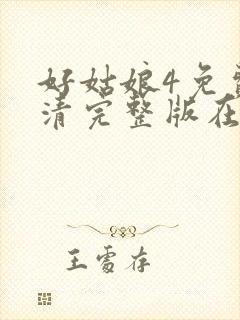 好姑娘4免费
清完整版在
王雪存